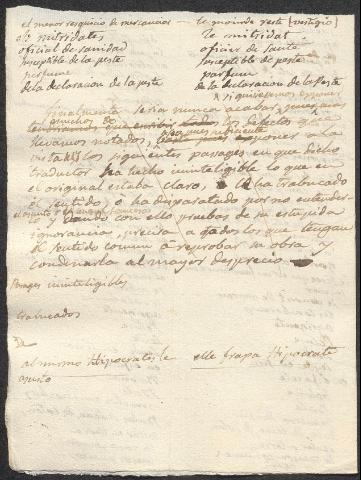 el menor resquicio de mercancias
el mitridates
oficial de sanidad
susceptible de la peste
perfume
de la declaracion de la peste
le moindre reste (vestigio)
le mitridat
officier de santé
susceptible de peste
parfum
de la declaration de la peste
si quisieramos exponer
Finalmente seria nunca acabar,
tendriamos que escribir todos los defectos q.e
llevamos notados,
los siguientes pasages en que dicho
traductor ha hecho ininteligible lo que en
el original estaba claro, o ha trabucado
el sentido, o ha desparatado por no entender-
lo dando con ello pruebas de su estupida
ignorancia, precisa a todos los que tengan
el sentido comun á reprobar su obra y
condenarla al mayor desprecio.
Pasages ininteligibles
trabucados
De
al mismo Hipocrates le
elle frapa Hipocrate